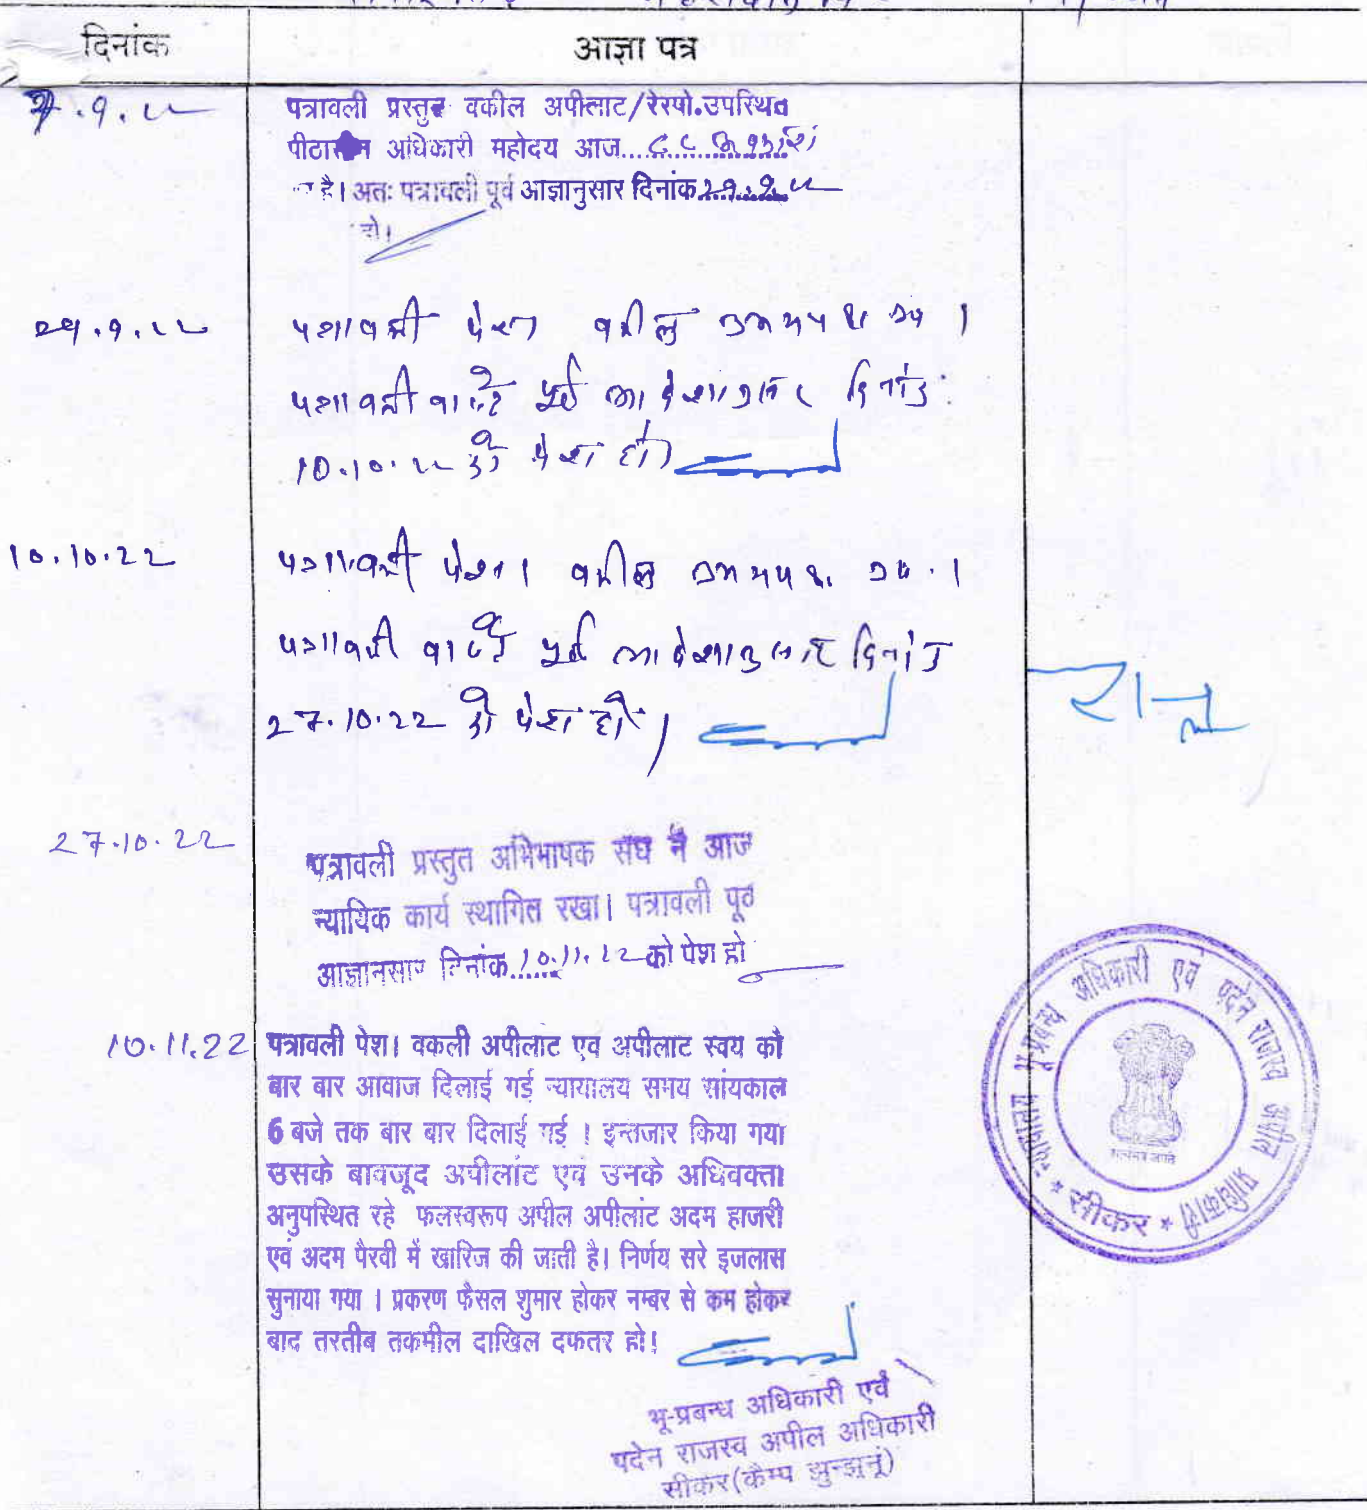 दिनांक
आज्ञा पत्र
7.9.22
पत्रावली प्रस्तुत वकील अपीलाट/रेस्पो.उपस्थित
पीठासीन अधिकारी महोदय आज
है। अतः पत्रावली पूर्व आज्ञानुसार दिनांक 29.9.22
हो।
29.9.22
पत्रावली पेश। वकील उभयपक्ष उप।
पत्रावली वास्ते पूर्व आदेशानुसार दिनांक
10.10.22 को पेश हो।
10.10.22
पत्रावली पेश। वकील उभयपक्ष उप.।
पत्रावली वास्ते पूर्व आदेशानुसार दिनांक
27.10.22 को पेश हो।
27.10.22
पत्रावली प्रस्तुत अभिभाषक संघ ने आज
न्यायिक कार्य स्थागित रखा। पत्रावली पूर्व
आज्ञानसार दिनांक 10.11.22 को पेश हो
10.11.22
पत्रावली पेश। वकली अपीलाट एव अपीलाट स्वय को
बार बार आवाज दिलाई गई न्यायालय समय सांयकाल
6 बजे तक बार बार दिलाई गई । इन्तजार किया गया
उसके बावजूद अपीलांट एवं उनके अधिवक्ता
अनुपस्थित रहे फलस्वरूप अपील अपीलांट अदम हाजरी
एवं अदम पैरवी में खारिज की जाती है। निर्णय सरे इजलास
सुनाया गया । प्रकरण फैसल शुमार होकर नम्बर से कम होकर
बाद तरतीब तकमील दाखिल दफतर हो!
भू-प्रबन्ध अधिकारी एवं
पदेन राजस्व अपील अधिकारी
सीकर(कैम्प झुन्झुनूं)
न्यायालय भू-प्रबन्ध अधिकारी एवं पदेन राजस्व अपील अधिकारी
* सीकर *
सत्यमेव जयते